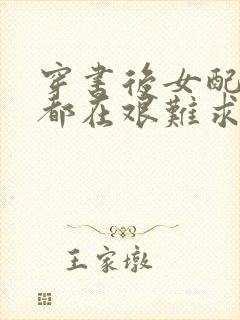 穿書後女配
都在艱難求
王家墩